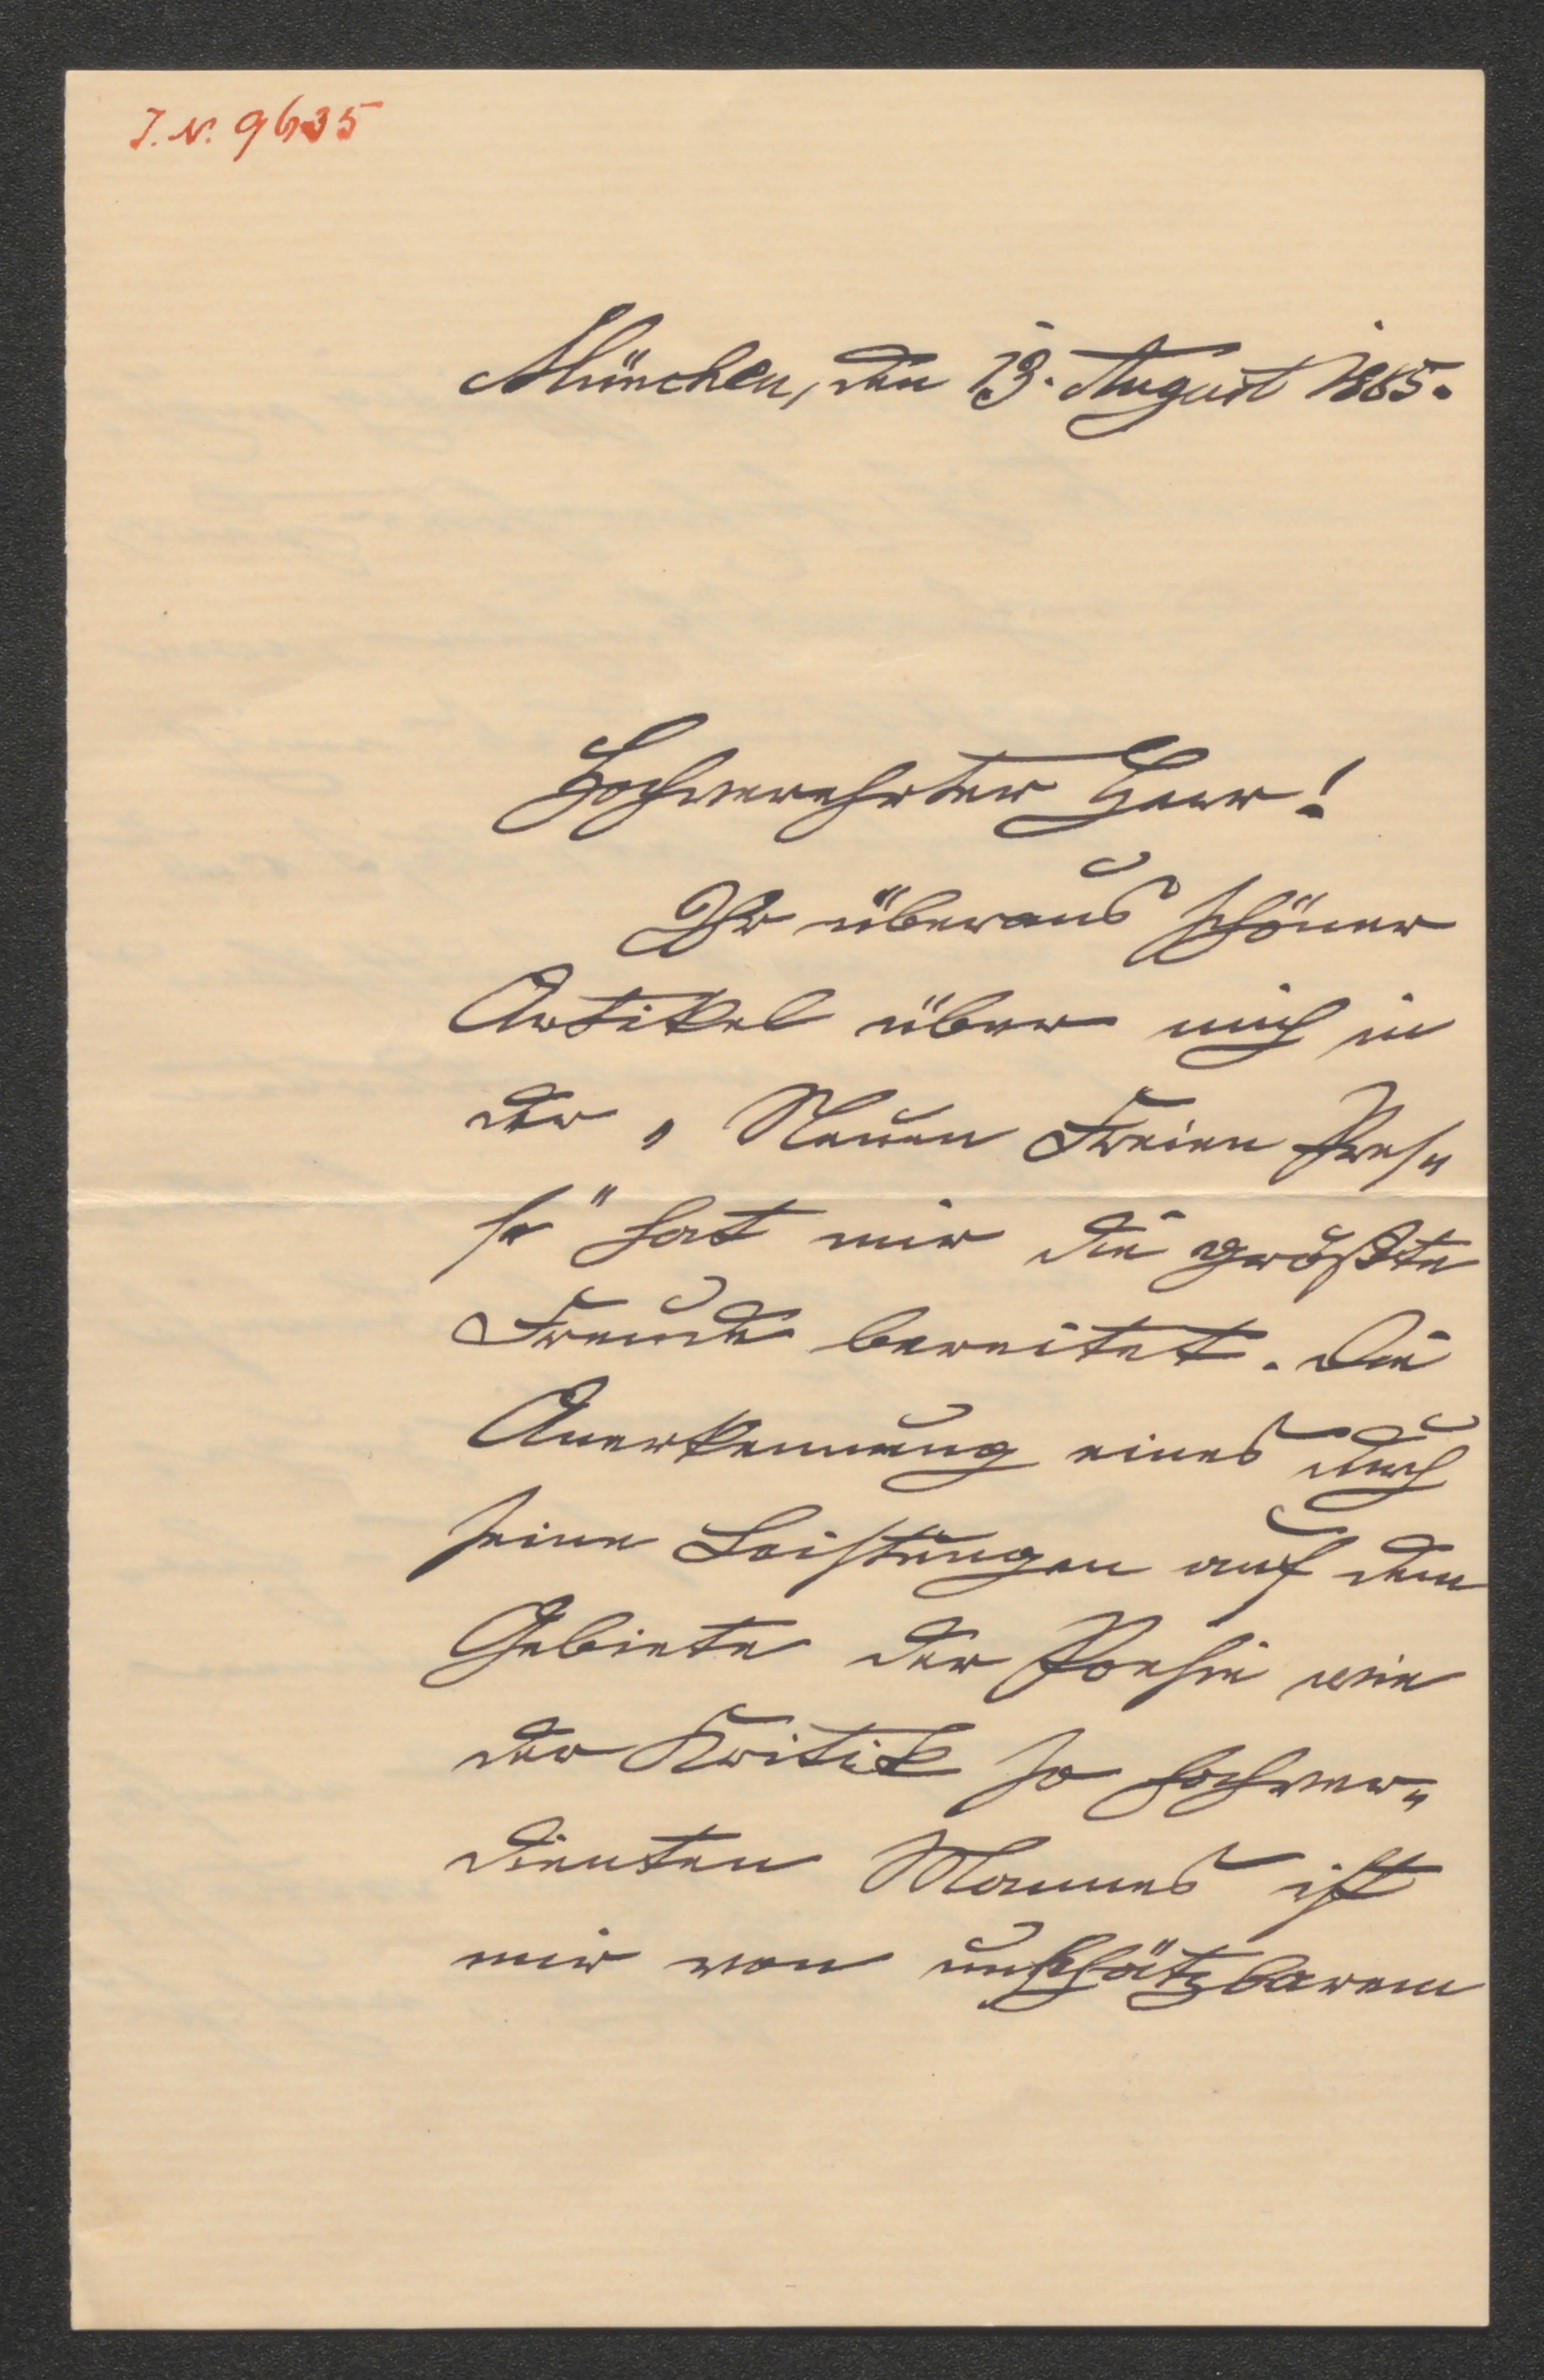 I. N. 9635
München, den 13. August 1885.
Hochverehrter Herr!
Ihr überaus schöner
Artikel über mich in
der „Neuen Freien Pres-
se" hat mir die größte
Freude bereitet. Die
Anerkennung eines durch
seine Leistungen auf dem
Gebiete der Poesie wie
der Kritik so hochver-
dienten Mannes ist
mir von unschätzbarem